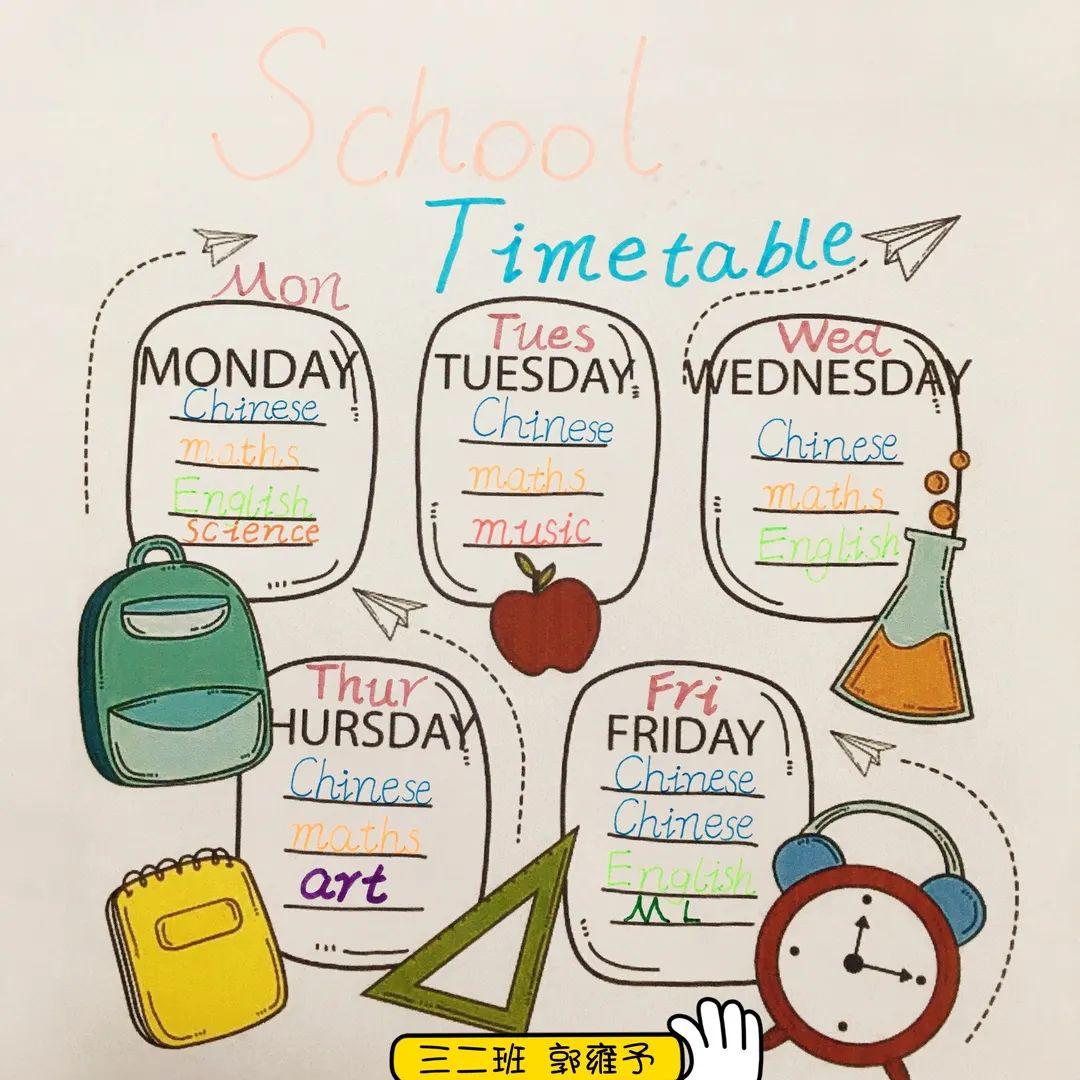 School
Timetable
Mon
MONDAY
Chinese
maths
English
science
Tues
TUESDAY
Chinese
maths
music
Wed
WEDNESDAY
Chinese
maths
English
Thur
HURSDAY
Chinese
maths
art
Fri
FRIDAY
Chinese
Chinese
English
ML
三二班 郭雍予